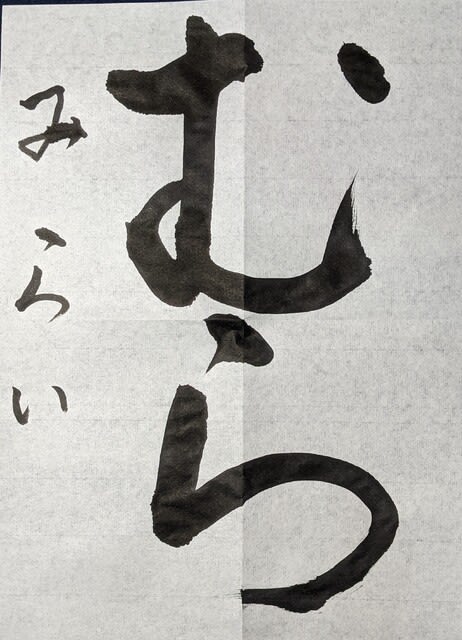 むら
みらい